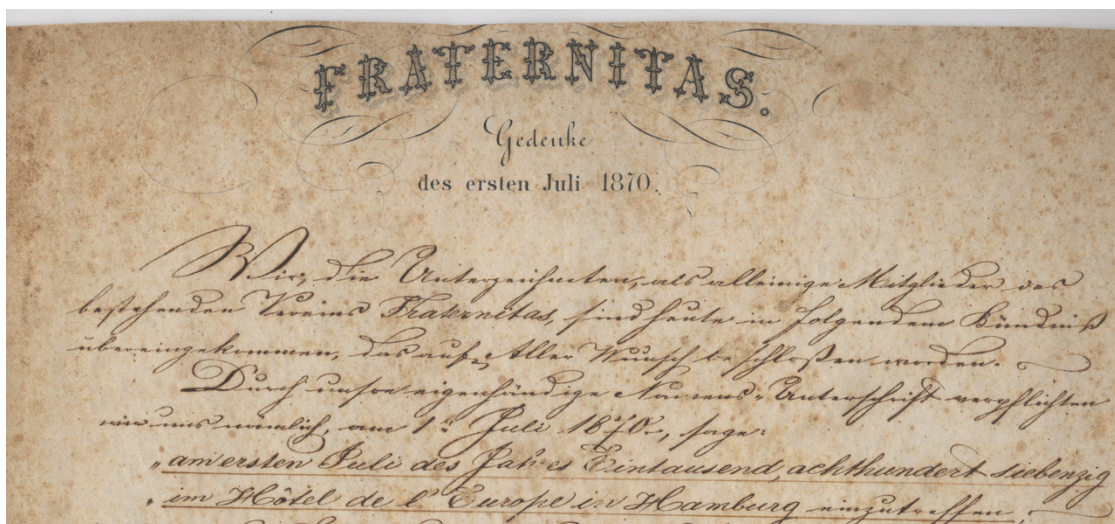 FRATERNITAS.
Gedenke
des ersten Juli 1870.
Wir, die Unterzeichneten, als alleinige Mitglieder des
bestehenden Vereins Fraternitas, sind heute in folgendem Bündniß
übereingekommen, das auf Aller Wunsch beschloßen worden.
Durch unsre eigenhändige Namens-Unterschrift verpflichten
wir uns nämlich, am 1ten Juli 1870, sage:
„am ersten Juli des Jahres Eintausend, achthundert siebenzig
„im Hôtel de l'Europe in Hamburg einzutreffen.